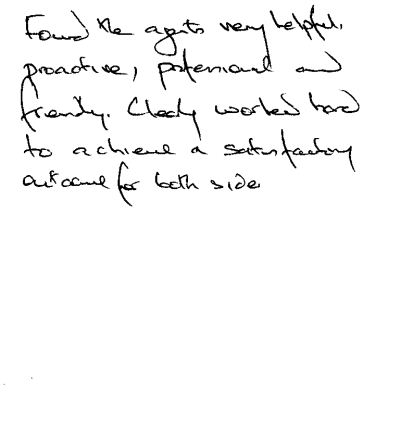 Found the agents very helpful,
proactive, professional and
friendly. Clearly worked hard
to achieve a satisfactory
outcome for both side